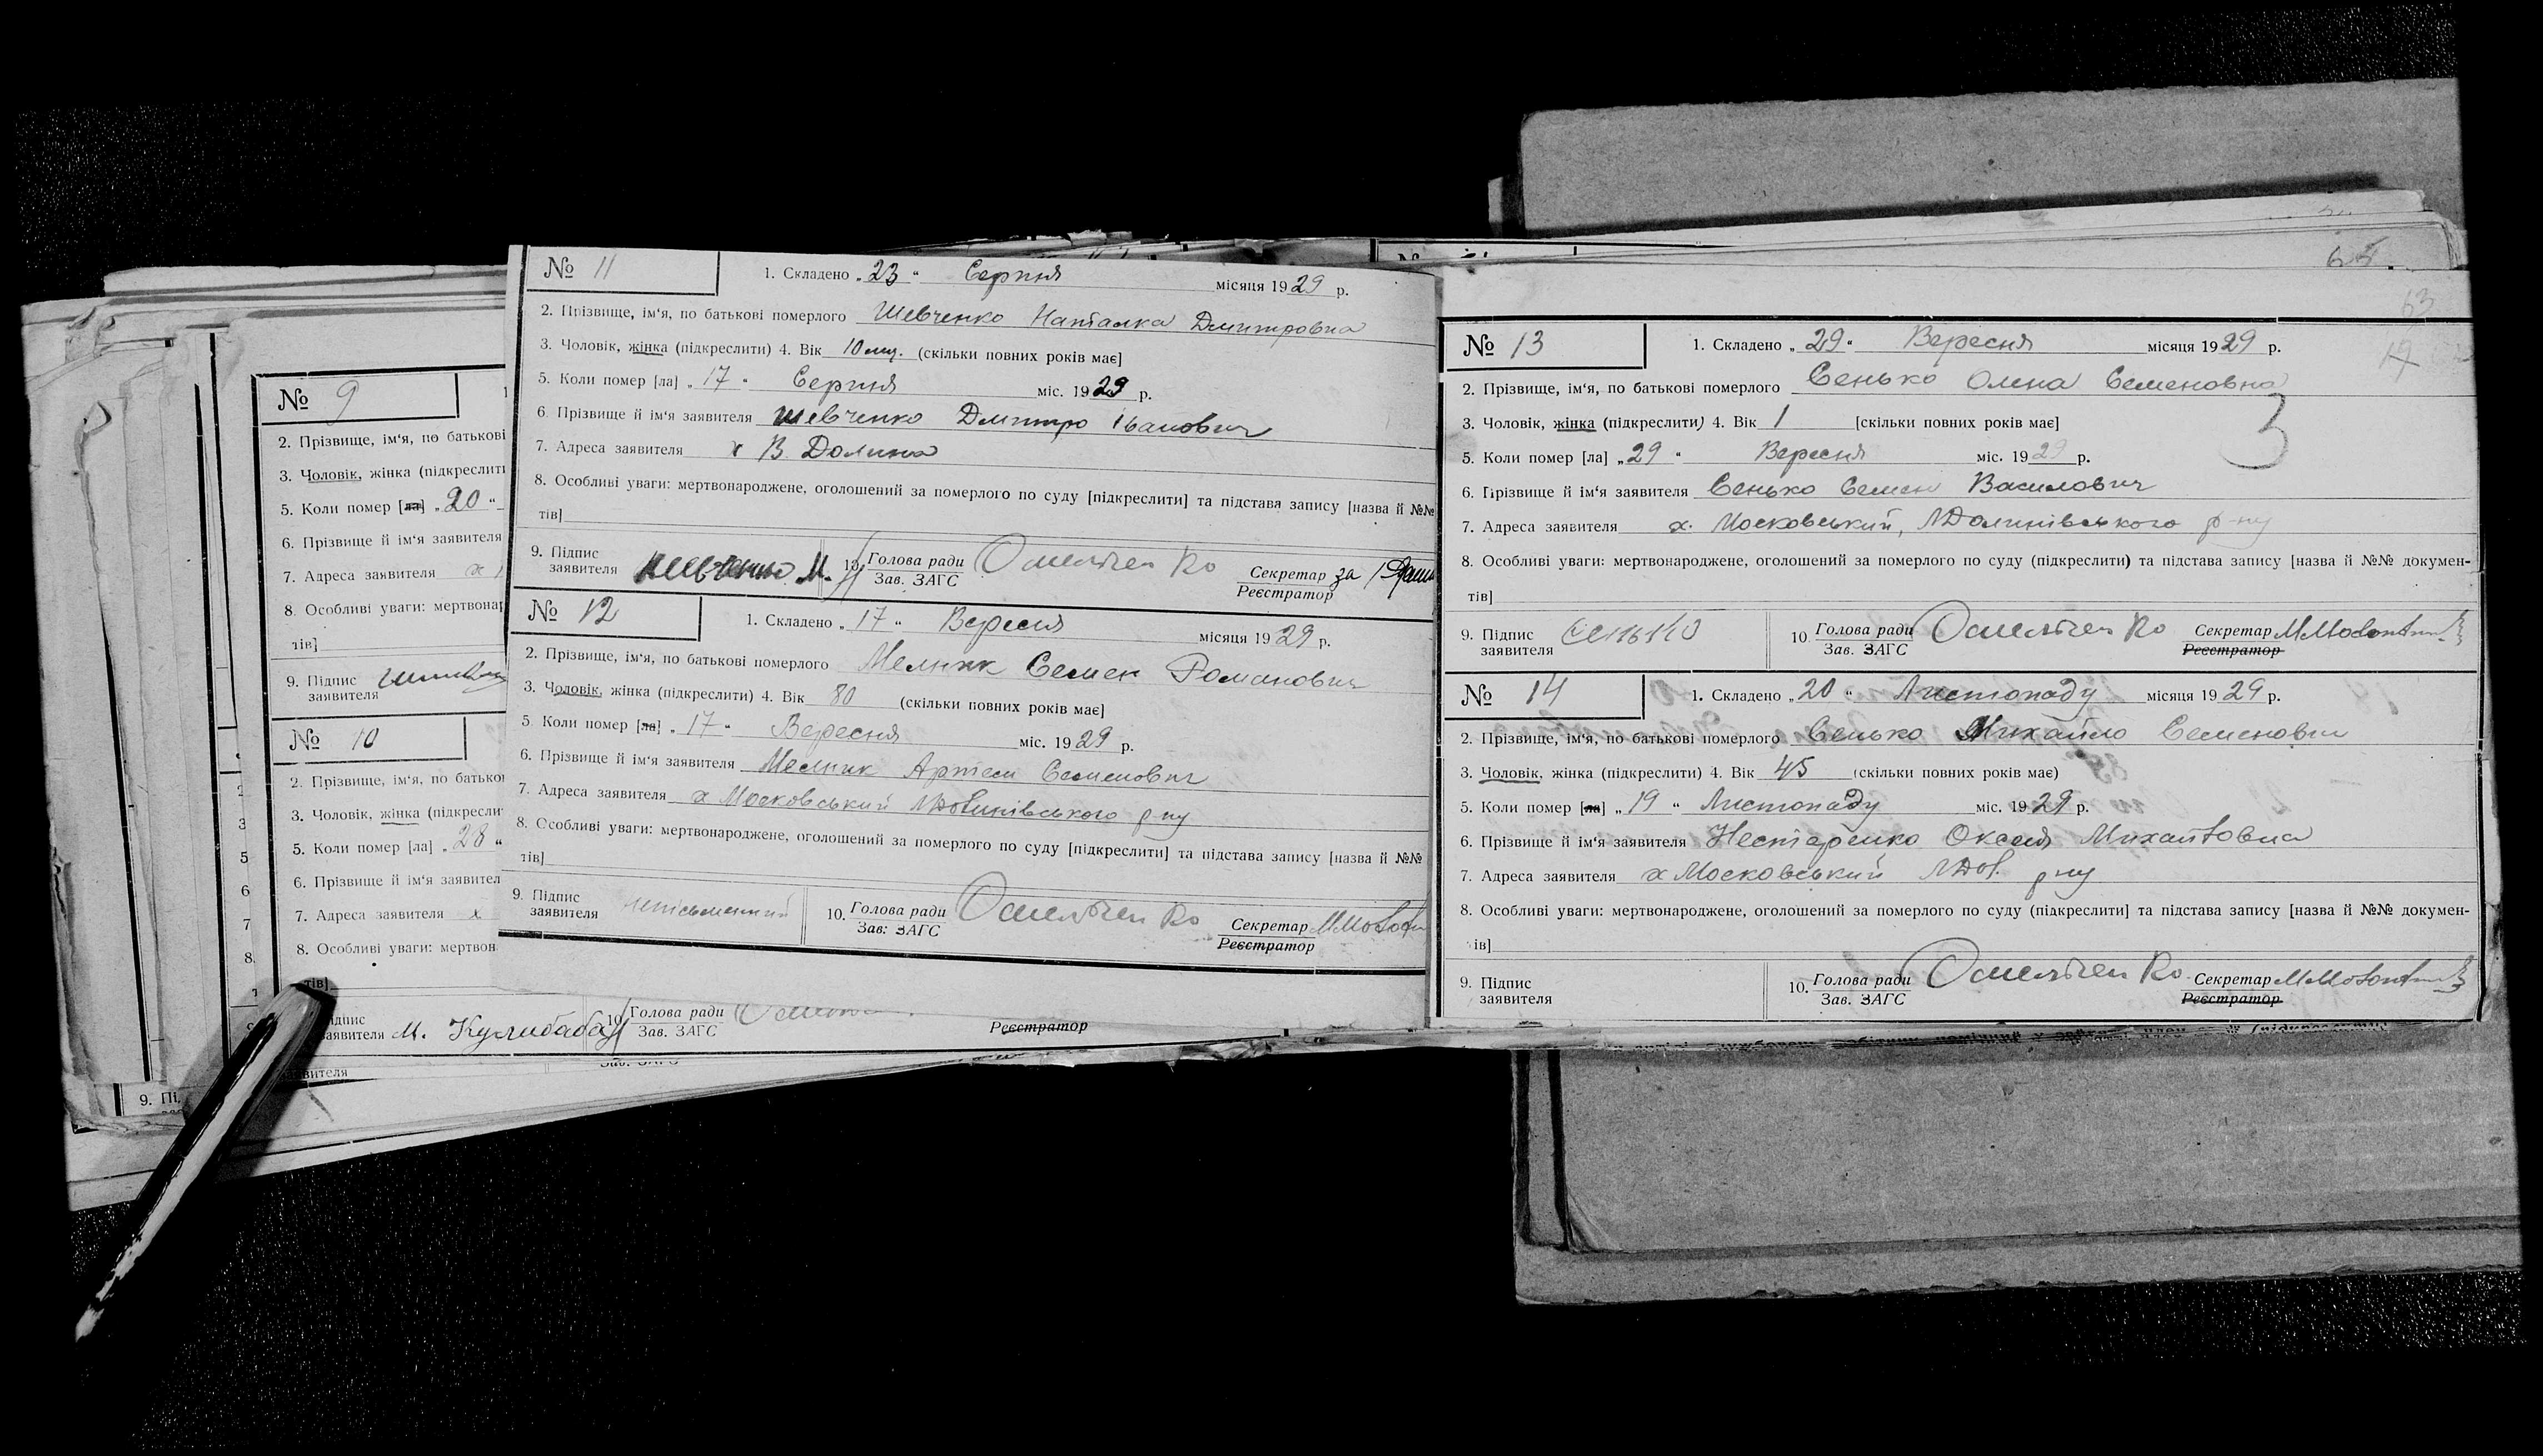 № 9
2. Прізвище, ім'я, по батькові
3. Чоловік, жінка (підкреслити
5. Коли помер [ла] „20“
6. Прізвище й ім'я заявителя
7. Адреса заявителя х
8. Особливі уваги: мертвонар
тів]
9. Підпис
заявителя
№ 10
2. Прізвище, ім'я, по батько
3. Чоловік, жінка (підкресли
5. Коли помер [ла] „28“
6. Прізвище й ім'я заявител
7. Адреса заявителя х
8. Особливі уваги: мертвон
тів]
Підпис
заявителя М. Кулибаба 10. Голова ради
Зав. ЗАГС
Реєстратор
№ 11
1. Складено „23“ Серпня місяця 1929 р.
2. Прізвище, ім'я, по батькові померлого Шевченко Наталка Дмитровна
3. Чоловік, жінка (підкреслити) 4. Вік 10 міс. (скільки повних років має]
5. Коли помер [ла] „17“ Серпня міс. 1929 р.
6. Прізвище й ім'я заявителя Шевченко Дмитро Іванович
7. Адреса заявителя х В. Долина
8. Особливі уваги: мертвонароджене, оголошений за померлого по суду [підкреслити] та підстава запису [назва й №№
тів]
9. Підпис заявителя Шевченко 10. Голова ради Омельченко Секретар за
Зав. ЗАГС Реєстратор
№ 12
1. Складено „17“ Вересня місяця 1929 р.
2. Прізвище, ім'я, по батькові померлого Мелник Семен Романович
3. Чоловік, жінка (підкреслити) 4. Вік 80 (скільки повних років має]
5. Коли помер [ла] „17“ Вересня міс. 1929 р.
6. Прізвище й ім'я заявителя Мелник Артем Семенович
7. Адреса заявителя х Московський р-ну
8. Особливі уваги: мертвонароджене, оголошений за померлого по суду [підкреслити] та підстава запису [назва й №№
тів]
9. Підпис заявителя неписьменний 10. Голова ради Омельченко Секретар
Зав: ЗАГС Реєстратор
63
№ 13
1. Складено „29“ Вересня місяця 1929 р.
2. Прізвище, ім'я, по батькові померлого Сенько Олена Семеновна
3. Чоловік, жінка (підкреслити) 4. Вік 1 [скільки повних років має]
3
5. Коли помер [ла] „29“ Вересня міс. 1929 р.
6. Прізвище й ім'я заявителя Сенько Семен Василович
7. Адреса заявителя х. Московський, р-ну
8. Особливі уваги: мертвонароджене, оголошений за померлого по суду (підкреслити) та підстава запису [назва й №№ докумен-
тів]
9. Підпис заявителя Сенько 10. Голова ради Омельченко Секретар
Зав. ЗАГС Реєстратор
№ 14
1. Складено „20“ Листопаду місяця 1929 р.
2. Прізвище, ім'я, по батькові померлого Сенько Михайло Семенович
3. Чоловік, жінка (підкреслити) 4. Вік 45 (скільки повних років має)
5. Коли помер [ла] „19“ Листопаду міс. 1929 р.
6. Прізвище й ім'я заявителя Нестеренко Оксеня Михайловна
7. Адреса заявителя х Московський р-ну
8. Особливі уваги: мертвонароджене, оголошений за померлого по суду (підкреслити] та підстава запису [назва й №№ докумен-
тів]
9. Підпис заявителя 10. Голова ради Омельченко Секретар
Зав. ЗАГС Реєстратор